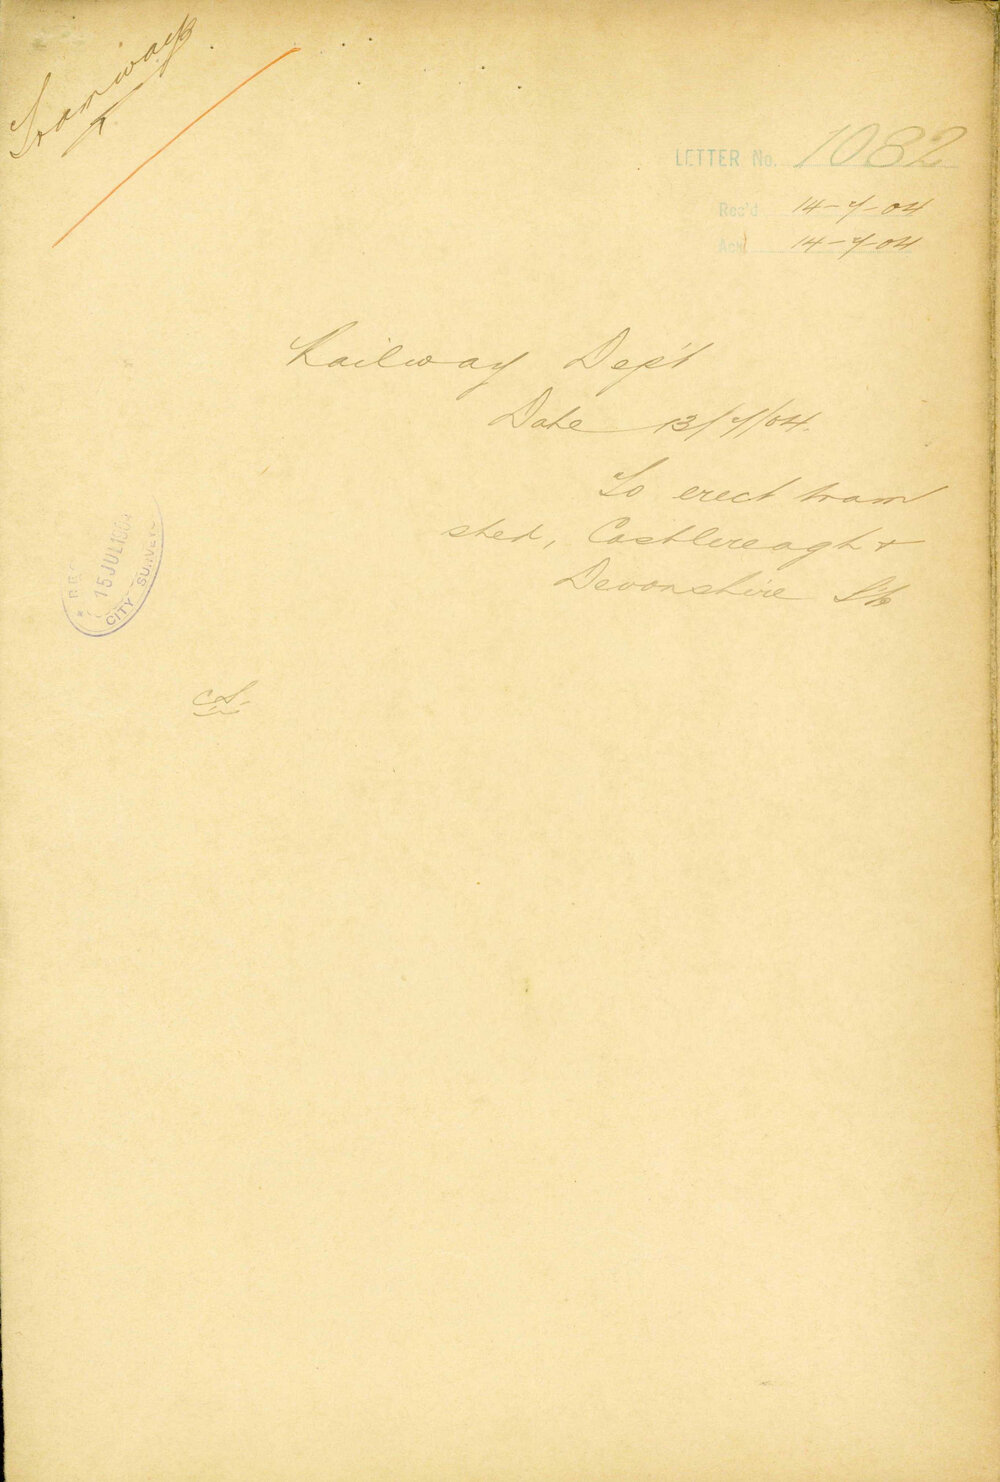 Tramways
LETTER No. 1082
Rec'd 14-7-04
Ack 14-7-04
Railway Dep't
Date 13/7/04.
To erect tram
shed, Castlereagh &
Devonshire Sts
15 JUL 1904
CITY SURVEY